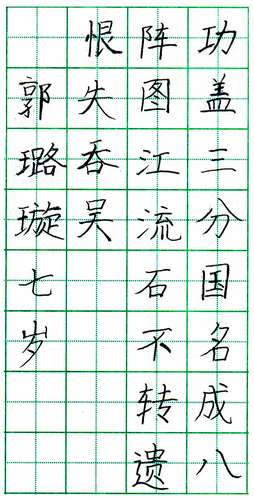 功盖三分国名成八
阵图江流石不转遗
恨失吞吴
郭璐璇七岁